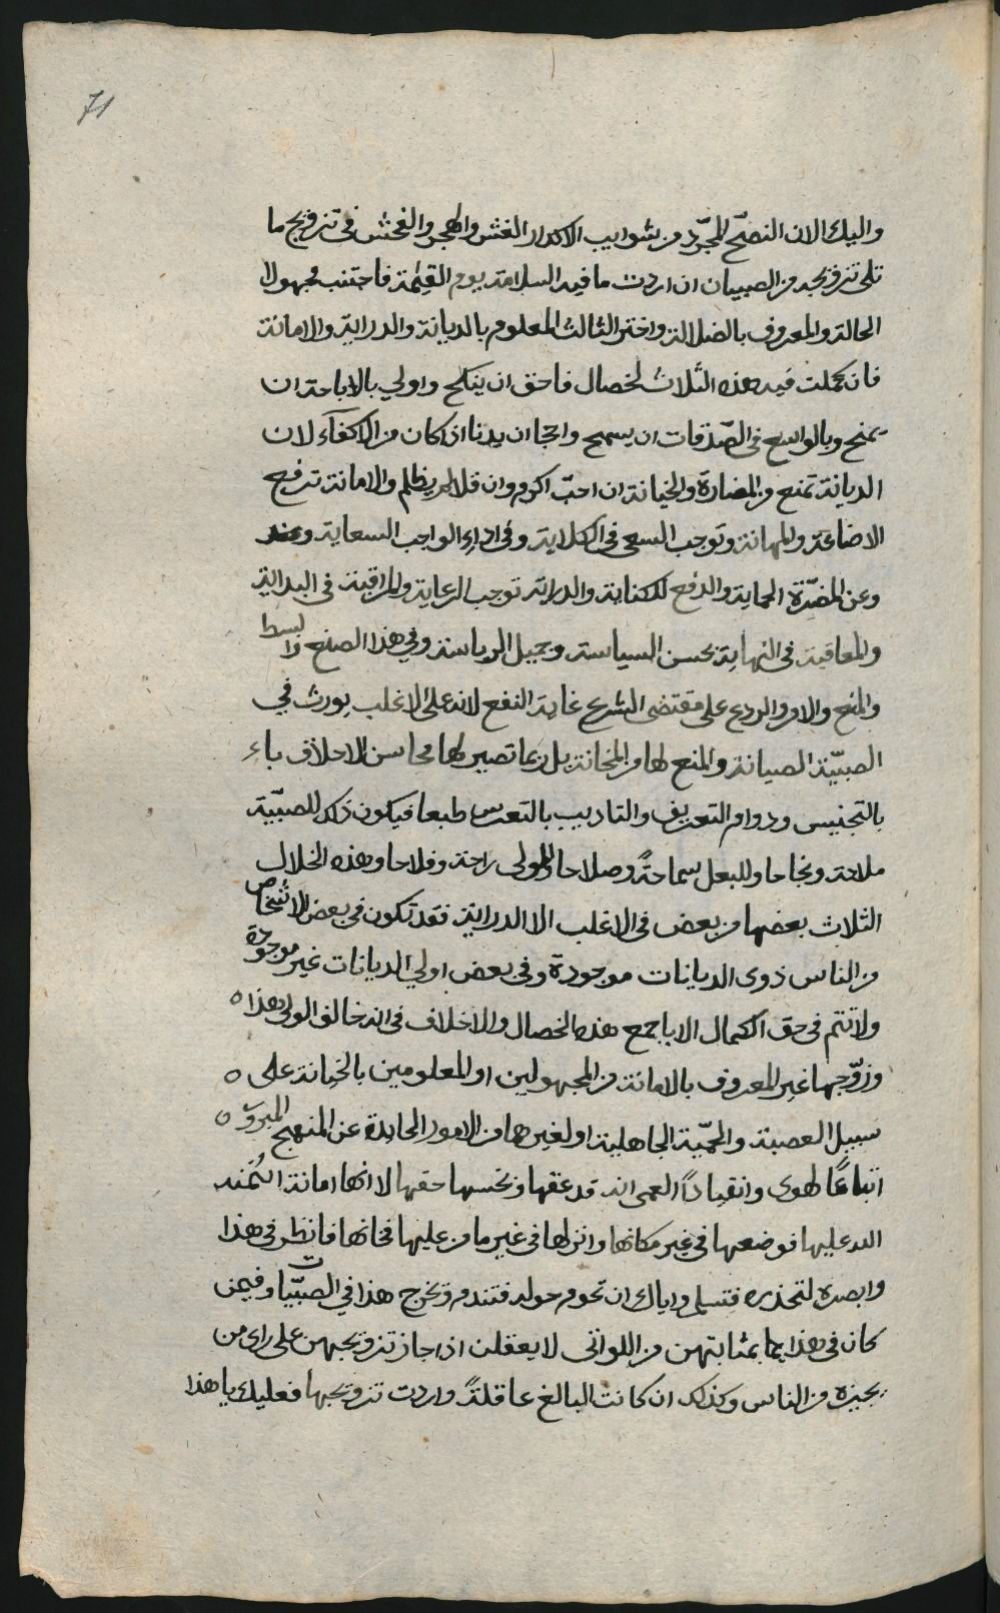 71
واليك الان النصح المجرّد من شوايب الاكدار الغش والهجر والفحش في تزويج ما
تلى تزويجه من الصبيان ان اردت ما فيه السلامة يوم القيمة فاجتنب مجهولا
الحالة والمعروف بالضلالة واختر الثالث المعلوم بالديانة والدراية والامانة
فان كملت فيه هذه الثلاث لخصال فاحق ان ينكح واولي بالاباحة ان
يمنح وبالواسع في الصّدقات ان يسمح واحجا ان يدنا اذا كان من الاكفآء لان
الديانة تمنع من المضارة والخيانة ان احبّ اكرم وان قلا لم يظلم والامانة ترفع
الاضاعة والمهانة وتوجب السعي في الكلاية وفي اداء الواجب السعاية وعند
وعن المضرّة الحماية والدفع للكناية والدراية توجب الرعاية والمراقبة في البداية
والمعاقبة في النهاية بحسن السياسة وجميل الرياسة وفي هذا الصنع والبسط
والمنع والامر والردع على مقتضى الشرع غاية النفع لانه على الاغلب يورث في
الصبيّة الصيانة والمنع لها من المخانة بل ربما تصير لها محاسن الاخلاق باء
بالتجنيس ودوام التعريف والتاديب بالتعرس طبعا فيكون ذلك للصبيّة
ملاحة ونجاحا وللبعل سماحةً وصلاحا وللولى راحة وفلاحا وهذه الخلال
الثلاث بعضها من بعض في الاغلب الا الدراية فقد تكون في بعض الاشخاص
من الناس ذوى الديانات موجودة وفي بعض اولي الديانات غير موجودة
ولا تتم في حق الكمال الا باجمع هذه الخصال والاخلاف في انه خالف الولى هذا ه
وزوّجها غير المعروف بالامانة من المجهولين او المعلومين بالخيانة على ه
سبيل العصبة والحميّة الجاهلية او لغيرهما من الامور الحايدة عن المنهج المبرور ه
اتباعًا لهوى وانقيادًا لعمى انه قد عقها وبخسها حقها لانها امانة ائتمنه
الله عليها فوضعها في غير مكانها وانزلها في غير مامن عليها فخانها فانظر في هذا
وابصره لتحذره فتسلم واياك ان تحوم حوله فتندم ويخرج هذا في الصبيّات وفيمن
كان في هذا بما بمثابتهن من اللواتى لا يعقلن اذا جاز تزويجهن على راى من
يجيزه من الناس وكذلك ان كانت البالغ عاقلةً واردت تزويجها فعليك يا هذا